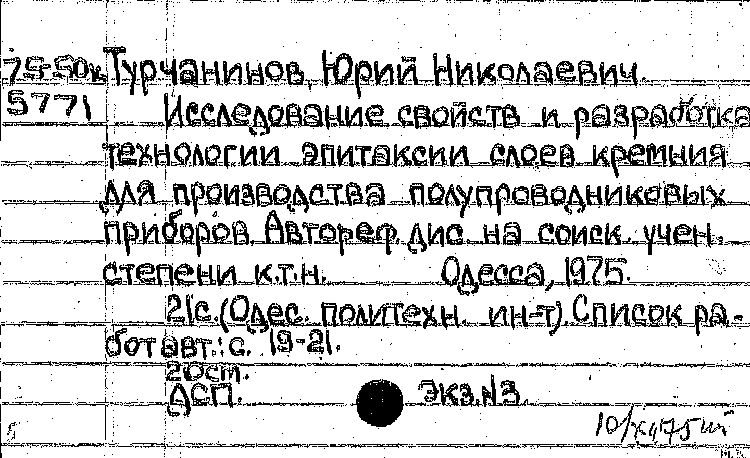 75-50к Турчанинов, Юрий Николаевич.
5771 Исследование свойств и разработка
технологии эпитаксии слоев кремния
для производства полупроводниковых
приборов. Автореф. дис. на соиск. учен.
степени к.т.н. Одесса, 1975.
21с. (Одес. политехн. ин-т). Список ра-
бот авт.: с. 19-21.
20ст.
ДСП. Экз.N3.